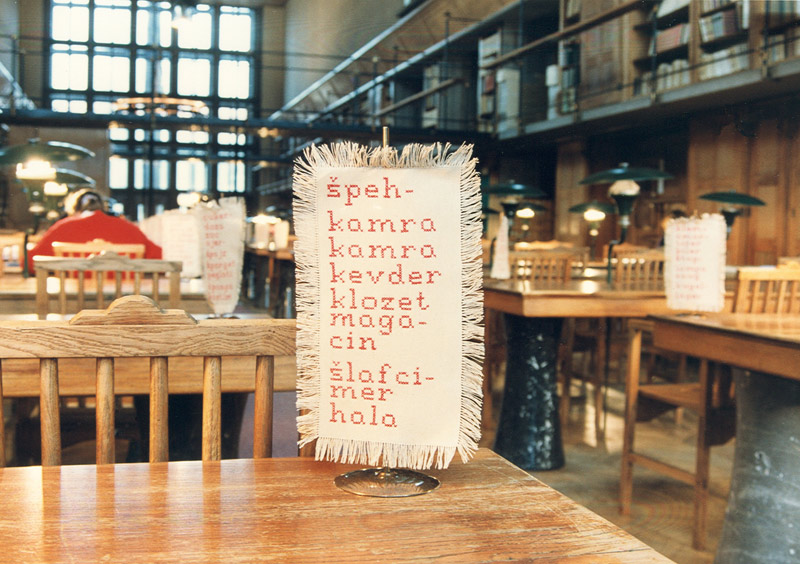 špeh-
kamra
kamra
kevder
klozet
maga-
cin
šlafci-
mer
hala